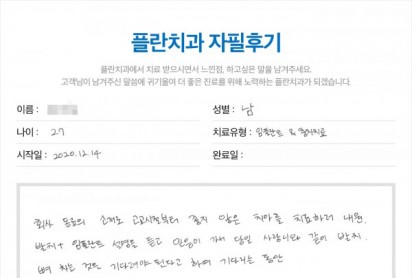 플란치과 자필후기
플란치과에서 치료 받으시면서 느낀점, 하고싶은 말을 남겨주세요.
고객님이 남겨주신 말씀에 귀기울여 더 좋은 진료를 위해 노력하는 플란치과가 되겠습니다.
이름 : 성별 : 남
나이 : 27 치료유형 : 임플란트 & 충치치료
시작일 : 2020.12.14 완료일 :
회사 동료의 소개로 고교시절부터 좋지 않은 치아를 치료하러 내원.
발치 + 임플란트 설명을 듣고 믿음이 가서 당일 사랑니와 같이 발치.
뼈 차는 것은 기다려야 된다고 하여 기다리는 동안